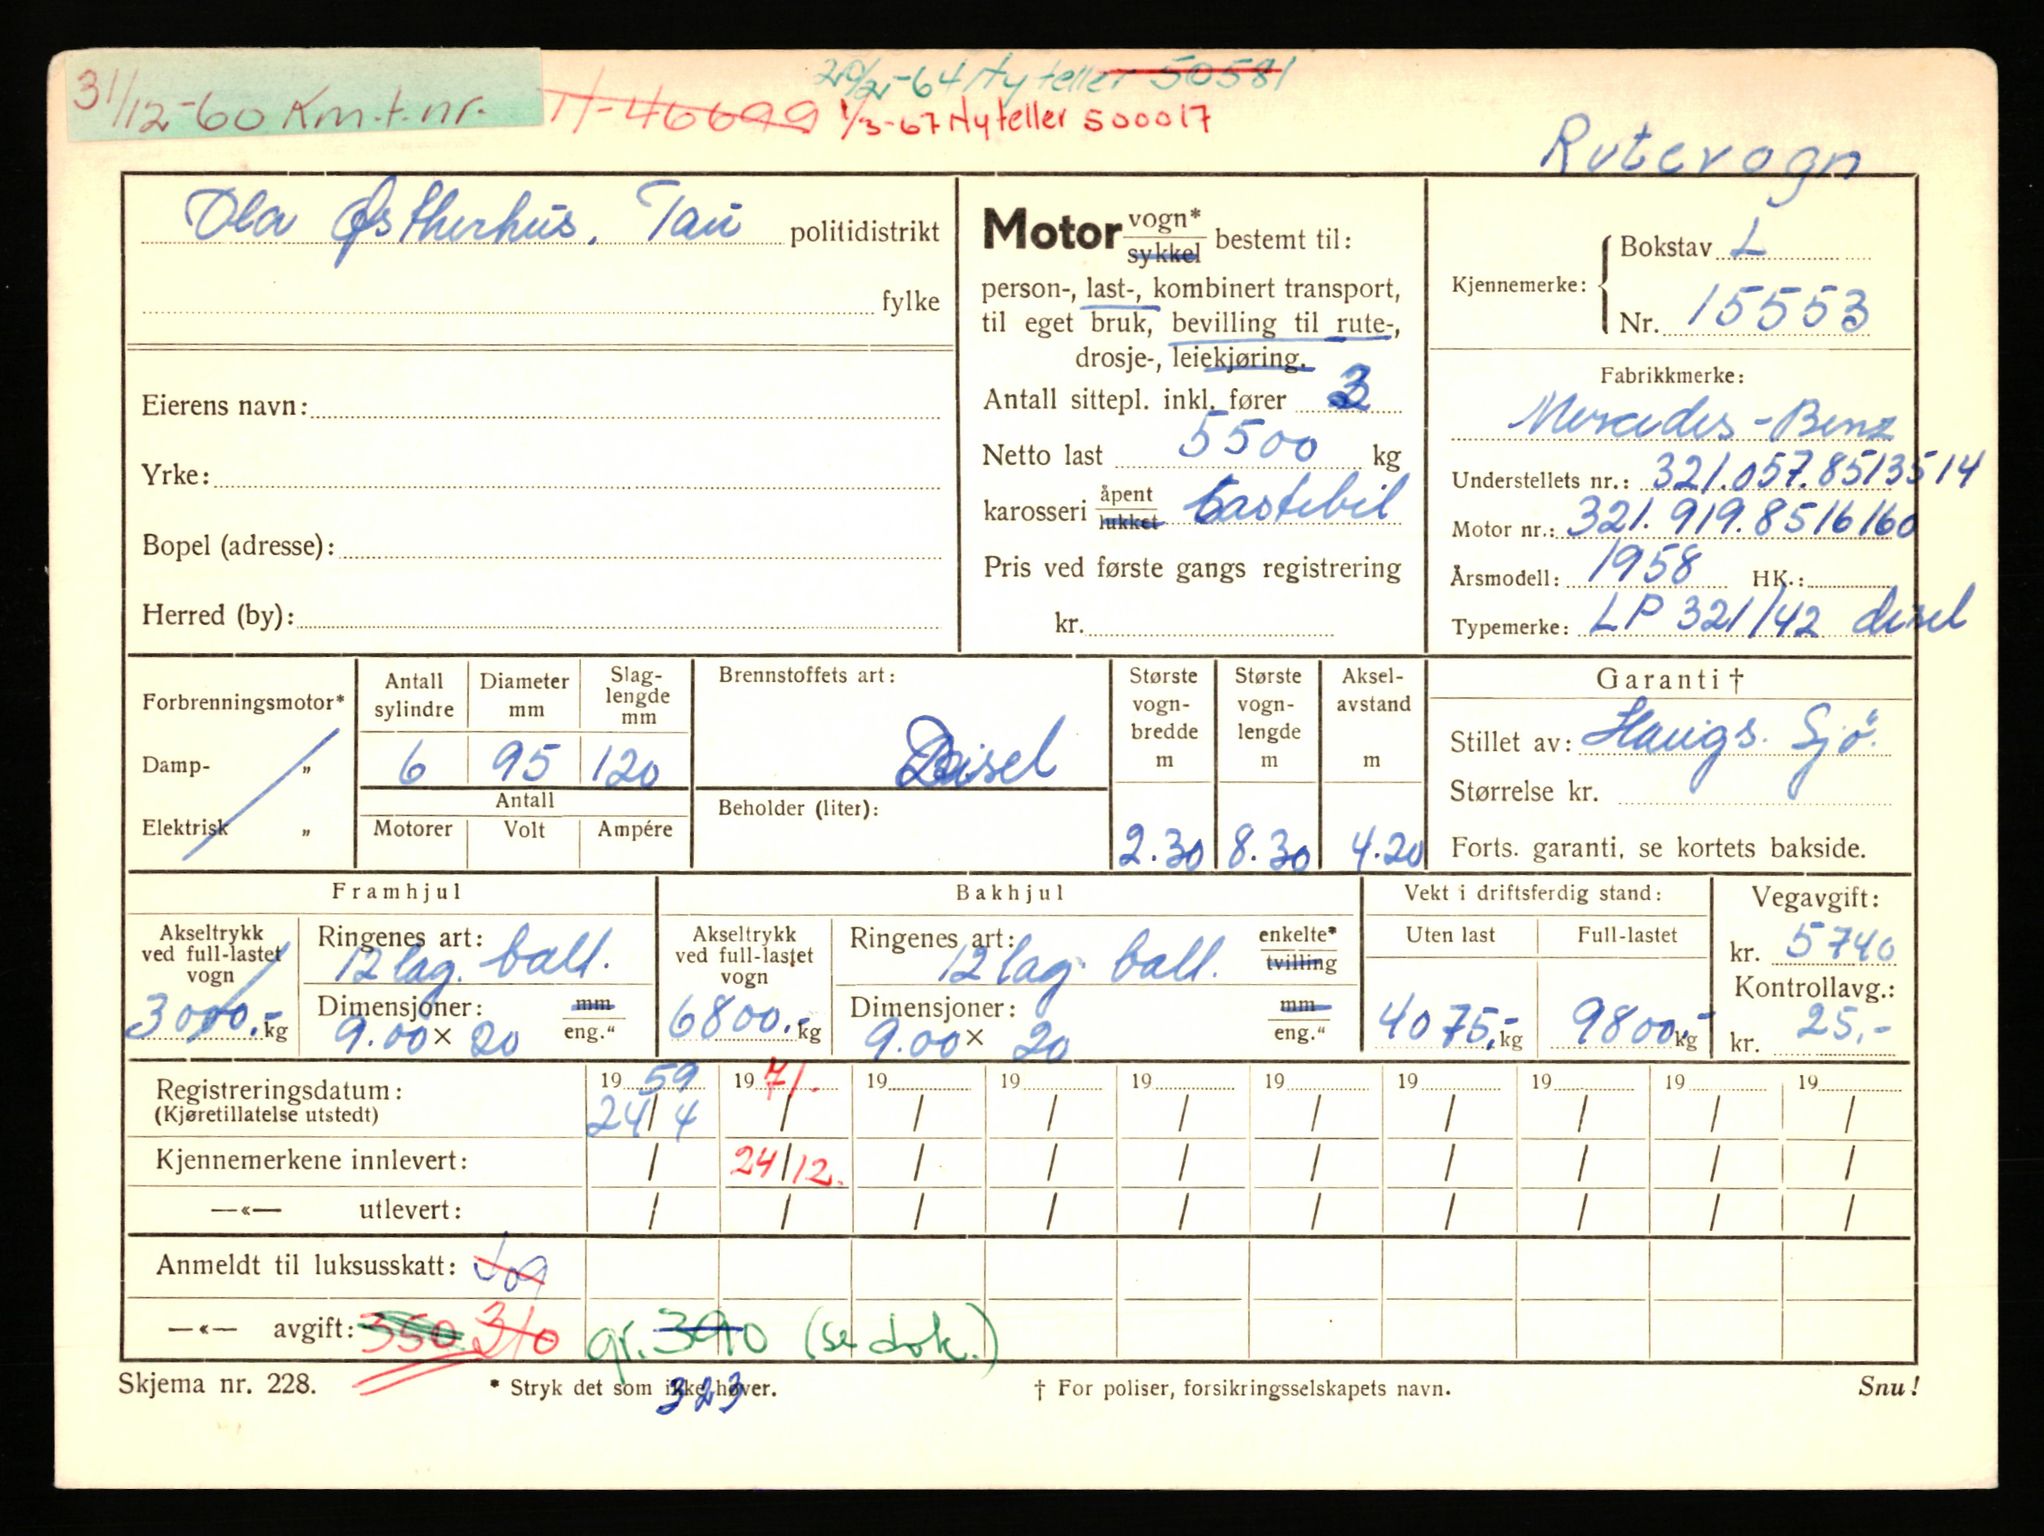 31/12-60 Km.t.nr. H-46699
20/2-64 Ny teller 50581
1/3-67 Ny teller 500017
Rutevogn
Ola Østherhus, Tau politidistrikt
fylke
Eierens navn:
Yrke:
Bopel (adresse):
Herred (by):
Motor vogn* sykkel bestemt til:
person-, last-, kombinert transport,
til eget bruk, bevilling til rute-,
drosje-, leiekjøring.
Antall sittepl. inkl. fører 3
Netto last 5500 kg
karosseri åpent lukket Lastebil
Pris ved første gangs registrering
kr.
Kjennemerke: Bokstav L
Nr. 15553
Fabrikkmerke:
Mercedes-Benz
Understellets nr.: 321.057.8513514
Motor nr.: 321.919.8516160
Årsmodell: 1958 HK.:
Typemerke: LP 321/42 disel
Forbrenningsmotor*
Damp- „
Elektrisk „
Antall sylindre Diameter mm Slag-lengde mm
6 95 120
Antall
Motorer Volt Ampére
Brennstoffets art:
Deisel
Beholder (liter):
Største vogn-bredde m
2.30
Største vogn-lengde m
8.30
Aksel-avstand m
4.20
Garanti †
Stillet av: Haugs. Sjö.
Størrelse kr.
Forts. garanti, se kortets bakside.
Framhjul
Akseltrykk ved full-lastet vogn
3000.- kg
Ringenes art: 12 lag. ball.
Dimensjoner: mm
9.00 x 20 eng."
Bakhjul
Akseltrykk ved full-lastet vogn
6800.- kg
Ringenes art: 12 lag. ball. enkelte* tvilling
Dimensjoner: mm
9.00 x 20 eng."
Vekt i driftsferdig stand:
Uten last Full-lastet
4075,- kg 9800,- kg
Vegavgift:
kr. 5740
Kontrollavg.:
kr. 25,-
Registreringsdatum: 19 59 19 71. 19 19 19 19 19 19 19 19
(Kjøretillatelse utstedt) 24/4 / / / / / / / / /
Kjennemerkene innlevert: / 24/12. / / / / / / / /
—«— utlevert: / / / / / / / / / /
Anmeldt til luksusskatt:
—«— avgift: 350 310 gr. 390 (se dok.)
323
Skjema nr. 228.
* Stryk det som ikke høver.
† For poliser, forsikringsselskapets navn.
Snu!